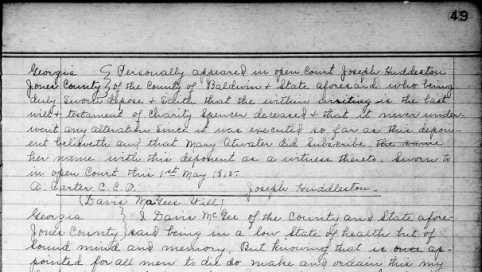 49
Georgia } Personally appeared in open Court Joseph Huddleston
Jones County } of the County of Baldwin & State aforesaid who being
duly Sworn depose & Saith that the within writing is the last
will & testament of Charity Spencer deceased & that it never under-
went any alteration since it was executed so far as this depon-
ent believeth and that Mary Atwater did Subscribe the same
her name with this deponent as a witness thereto. Sworn to
in open Court this 1st May 181
A. Carter C.C.O. Joseph Huddleston.
(Davis McGees Will)
Georgia } I Davis McGee of the County and State afore-
Jones County } said being in a low State of health but of
Sound mind and memory. But knowing that is once ap-
pointed for all men to die do make and ordain this my